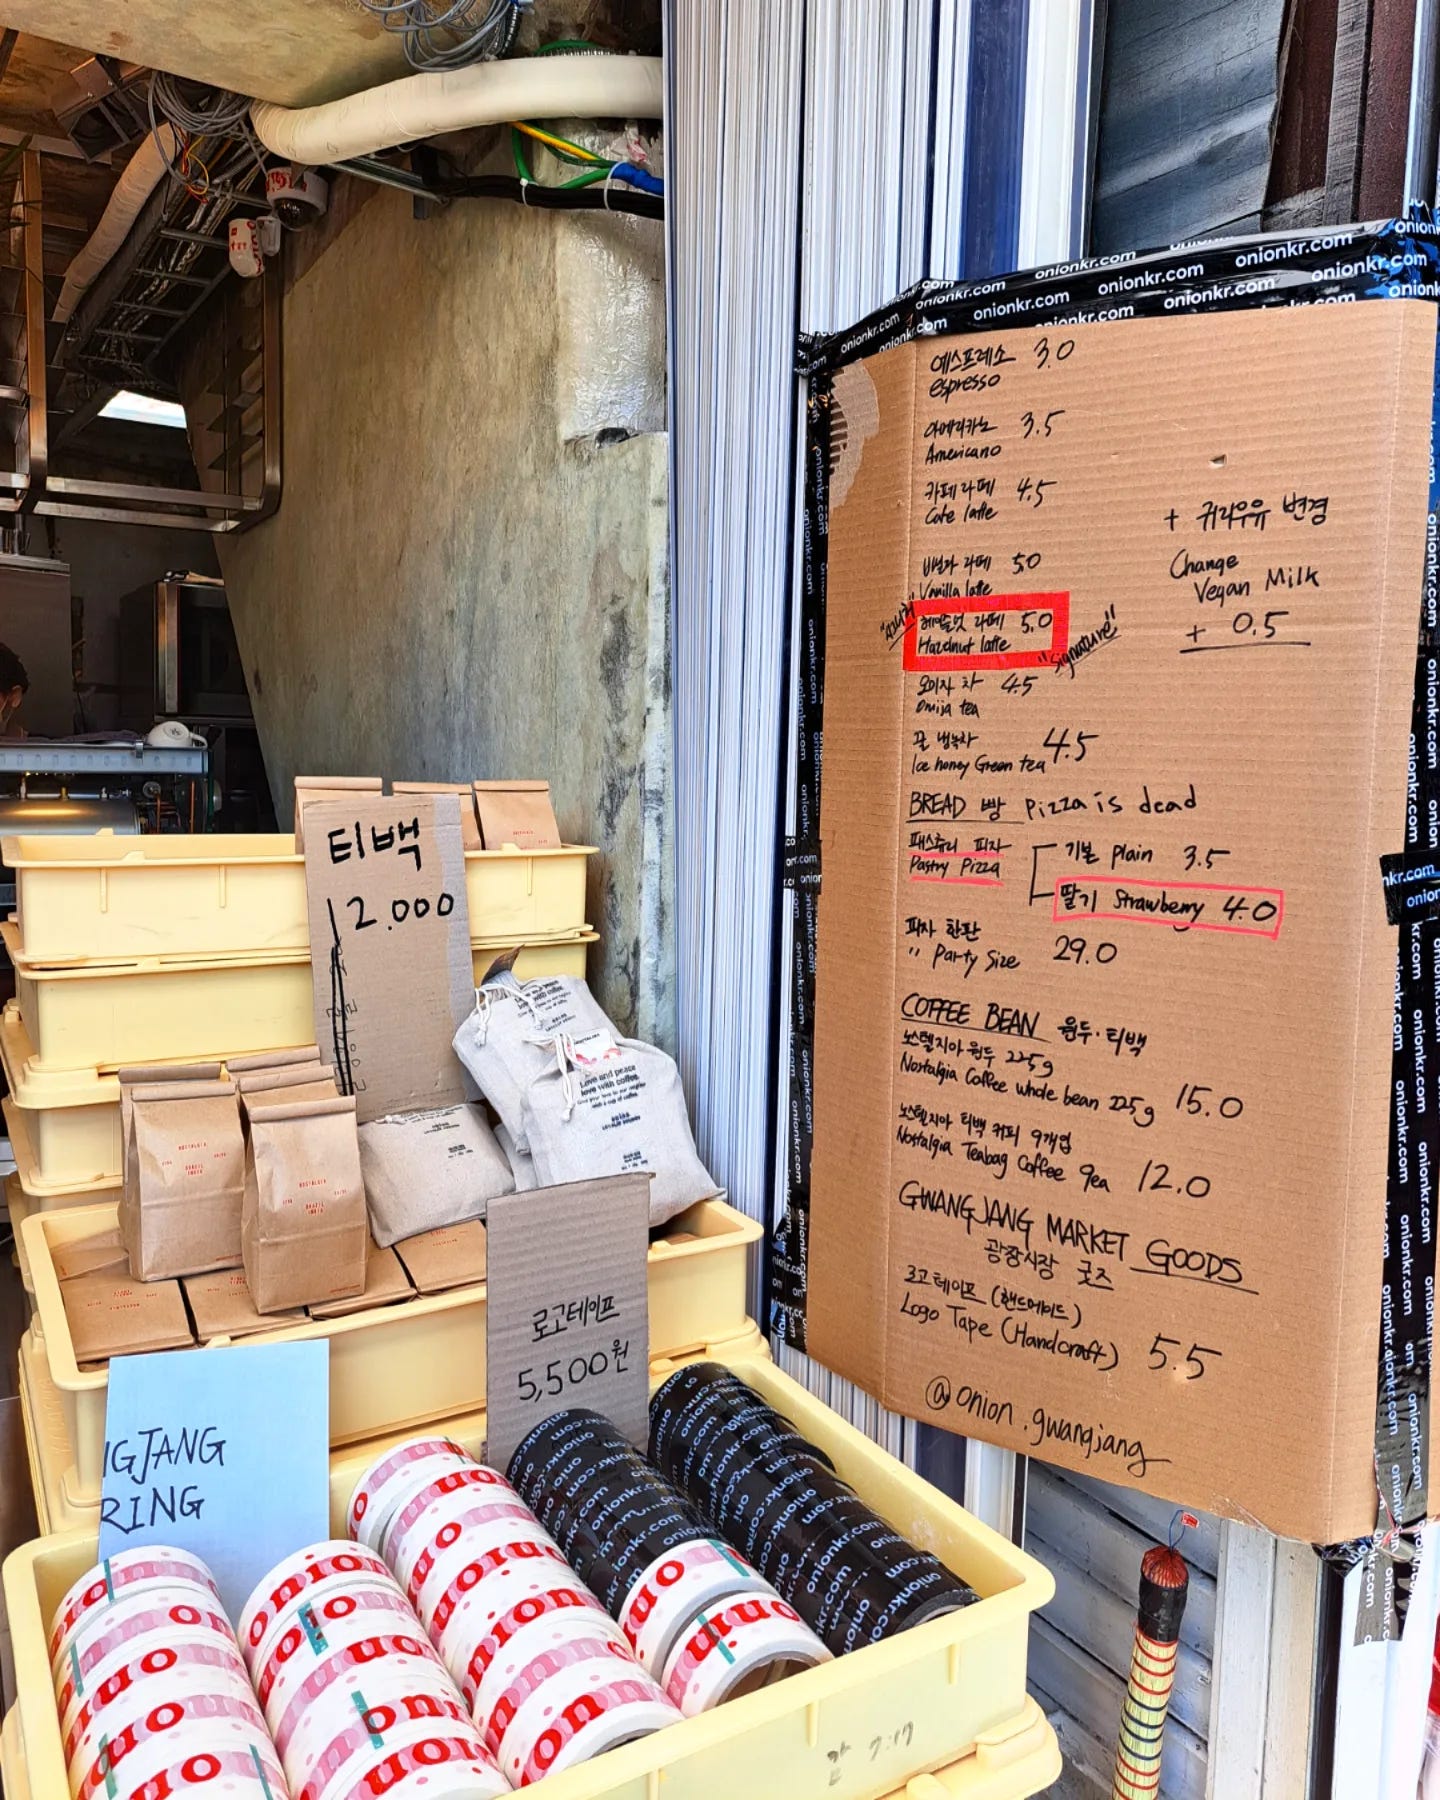 onionkr.com
에스프레소 3.0
espresso
아메리카노 3.5
Americano
카페라떼 4.5
Cafe latte
바닐라 라떼 5.0
Vanilla latte
"시그니처"
헤이즐넛 라떼 5.0
Hazelnut latte
"Signature"
오미자 차 4.5
Omija tea
꿀 냉녹차 4.5
Ice honey Green tea
+ 귀리우유 변경
Change
Vegan Milk
+ 0.5
BREAD 빵 Pizza is dead
패스츄리 피자
Pastry Pizza
기본 Plain 3.5
딸기 Strawberry 4.0
피자 한판
" Party Size 29.0
COFFEE BEAN 원두·티백
노스텔지아 원두 225g
Nostalgia Coffee whole bean 225g 15.0
노스텔지아 티백 커피 9개입
Nostalgia Teabag Coffee 9ea 12.0
GWANGJANG MARKET GOODS
광장시장 굿즈
로고 테이프 (핸드메이드)
Logo Tape (Handcraft) 5.5
@onion.gwangjang
티백
12.000
Love and peace
love with coffee
NOSTALGIA
BRAZIL
INDIA
NOSTALGIA
BRAZIL
INDIA
로고테이프
5,500원
NGJANG
RING
onion
onion
onion
onionkr.com
onionkr.com